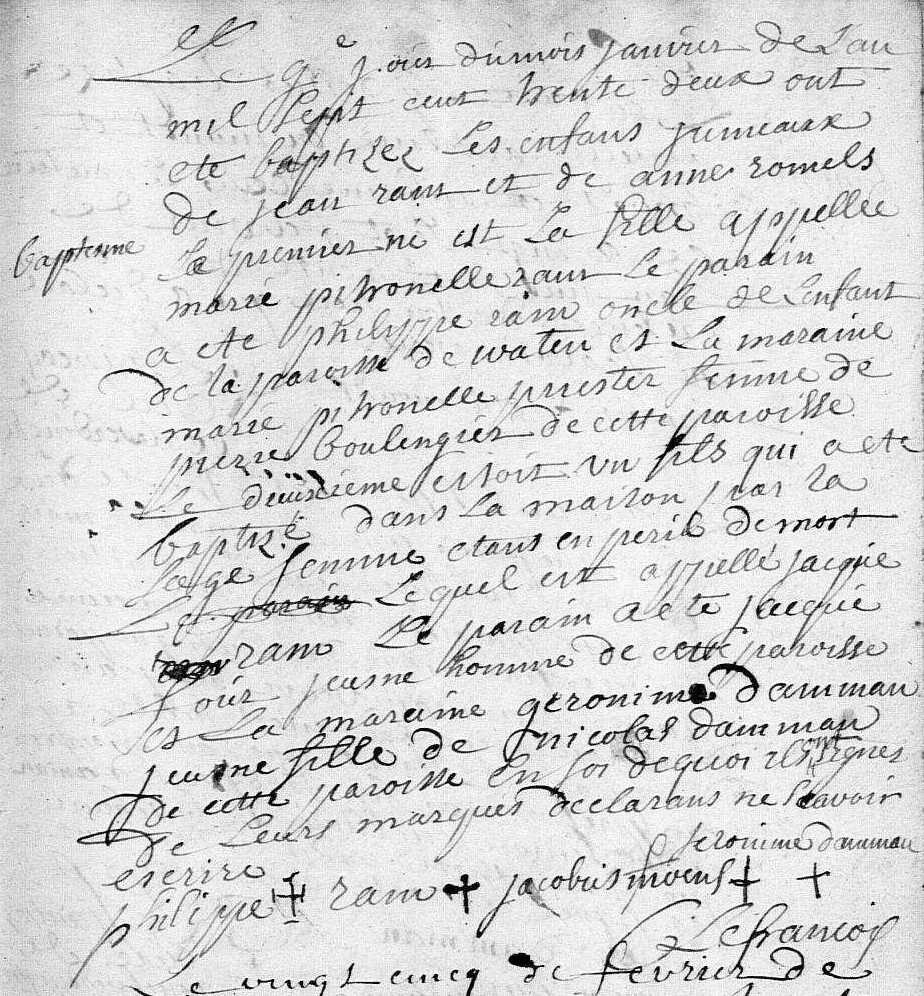 Le 9e jour du mois janvier de L'an
mil sept cent trente deux ont
ete baptizez Les enfans jumeaux
de jean ram et de anne romels
baptesme
Le premier né est La fille appellée
marie pitronelle ram Le parain
a ete philippe ram oncle de L'enfant
de la paroisse de waten et La maraine
marie pitronelle priester femme de
pierre boulengier de cette paroisse
Le deuxieme estoit un fils qui a ete
baptizé dans La maison par la
sage femme etans en peril de mort
Le parain Lequel est appellé jacque
ram Le parain a ete jacque
jeusne homme de cette paroisse
et La maraine geronime damman
jeusne fille de nicolas damman
de cette paroisse en foi de quoi ils ont signes
de Leurs marques declarans ne scavoir
escrire jeronime damman
philippe ram jacobus
Lefrancois
Le vingt cincq de fevrier de